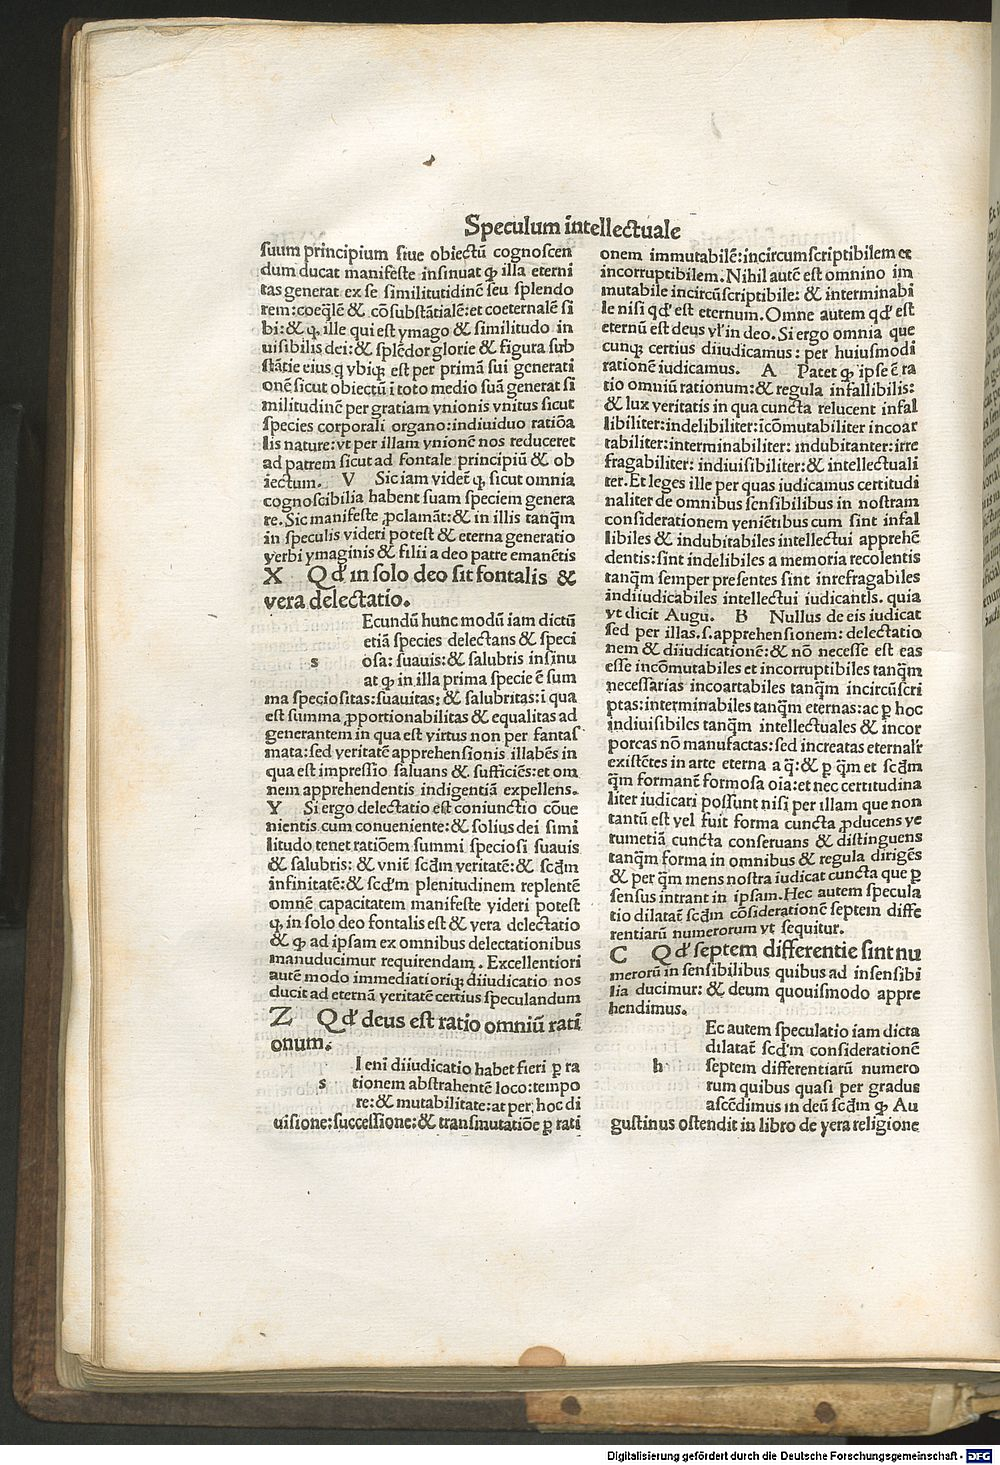 Speculum intellectuale
suum principium siue obiectū cognoscen
dum ducat manifeste insinuat ꝙ illa eterni
tas generat ex se similitutidinē seu splendo
rem: coeq̄lē & cōsubstātialē: et coeternalē si
bi: & ꝙ ille qui est ymago & similitudo in
uisibilis dei: & splēdor glorie & figura sub
stātie eius q vbiqꝫ est per primā sui generati
onē sicut obiectū i toto medio suā generat si
militudinē per gratiam vnionis vnitus sicut
species corporali organo: indiuiduo ratiōa
lis nature: vt per illam vnionē nos reduceret
ad patrem sicut ad fontale principiū & ob
iectum. V Sic iam videt̄ ꝙ sicut omnia
cognoscibilia habent suam speciem genera
re. Sic manifeste ꝓclamāt: & in illis tanq̄m
in speculis videri potest & eterna generatio
verbi ymaginis & filii a deo patre emanētis
X Qd' in solo deo sit fontalis &
vera delectatio.
Ecundū hunc modū iam dictū
etiā species delectans & speci
s osa: suauis: & salubris insinu
at ꝙ in illa prima specie ē sum
ma speciositas: suauitas: & salubritas: i qua
est summa ꝓportionabilitas & equalitas ad
generantem in qua est virtus non per fantas
mata: sed veritatē apprehensionis illabēs in
qua est impressio saluans & sufficiēs: et om
nem apprehendentis indigentiā expellens.
Y Si ergo delectatio est coniunctio cōue
nientis cum conueniente: & solius dei simi
litudo tenet ratiōem summi speciosi suauis
& salubris: & vnit̄ scd̄m veritatē: & scd̄m
infinitatē: & scd'm plenitudinem replentē
omnē capacitatem manifeste videri potest
ꝙ in solo deo fontalis est & vera delectatio
& ꝙ ad ipsam ex omnibus delectationibus
manuducimur requirendam. Excellentiori
autē modo immediatioriqꝫ diiudicatio nos
ducit ad eternā veritatē certius speculandum
Z Qd' deus est ratio omniū rati
onum.
I eni diiudicatio habet fieri ꝑ ra
s tionem abstrahentē loco: tempo
re: & mutabilitate: at per hoc di
uisione: successione: & transmutatiōe ꝑ rati
onem immutabilē: incircumscriptibilem et
incorruptibilem. Nihil autē est omnino im
mutabile incircūscriptibile: & interminabi
le nisi qd' est eternum. Omne autem qd' est
eternū est deus vl' in deo. Si ergo omnia que
cunqꝫ certius diiudicamus: per huiusmodi
rationē iudicamus. A Patet ꝙ ipse ē ra
tio omniū rationum: & regula infallibilis:
& lux veritatis in qua cuncta relucent infal
libiliter: indelibiliter: icōmutabiliter incoar
tabiliter: interminabiliter: indubitanter: irre
fragabiliter: indiuisibiliter: & intellectuali
ter. Et leges ille per quas iudicamus certitudi
naliter de omnibus sensibilibus in nostram
considerationem veniētibus cum sint infal
libiles & indubitabiles intellectui apprehē
dentis: sint indelibiles a memoria recolentis
tanq̄m semper presentes sint inrefragabiles
indiiudicabiles intellectui iudicantis. quia
vt dicit Augu. B Nullus de eis iudicat
sed per illas. s. apprehensionem: delectatio
nem & diiudicationē: & nō necesse est eas
esse incōmutabiles et incorruptibiles tanq̄m
necessarias incoartabiles tanq̄m incircūscri
ptas: interminabiles tanq̄m eternas: ac ꝑ hoc
indiuisibiles tanq̄m intellectuales & incor
poreas nō manufactas: sed increatas eternalr̄
existētes in arte eterna a q̄: & ꝑ q̄m et scd̄m
q̄m formant̄ formosa oia: et nec certitudina
liter iudicari possunt nisi per illam que non
tantū est vel fuit forma cuncta ꝓducens ve
rumetiā cuncta conseruans & distinguens
tanq̄m forma in omnibus & regula dirigēs
& per q̄m mens nostra iudicat cuncta que ꝑ
sensus intrant in ipsam. Hec autem specula
tio dilatat̄ scd̄m cōsiderationē septem diffe
rentiarū numerorum vt sequitur.
C Qd' septem differentie sint nu
merorū in sensibilibus quibus ad insensibi
lia ducimur: & deum quouismodo appre
hendimus.
Ec autem speculatio iam dicta
dilatat̄ scd'm considerationē
h septem differentiarū numero
rum quibus quasi per gradus
ascēdimus in deū scd̄m ꝙ Au
gustinus ostendit in libro de vera religione
Digitalisierung gefördert durch die Deutsche Forschungsgemeinschaft - DFG